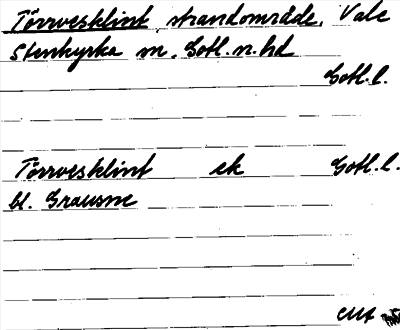 Törrvesklint, strandområde, Vale
Stenkyrka sn. Gotl. n. hd
Gotl. l.
Törrvesklint ek Gotl. l.
bl. Grausne